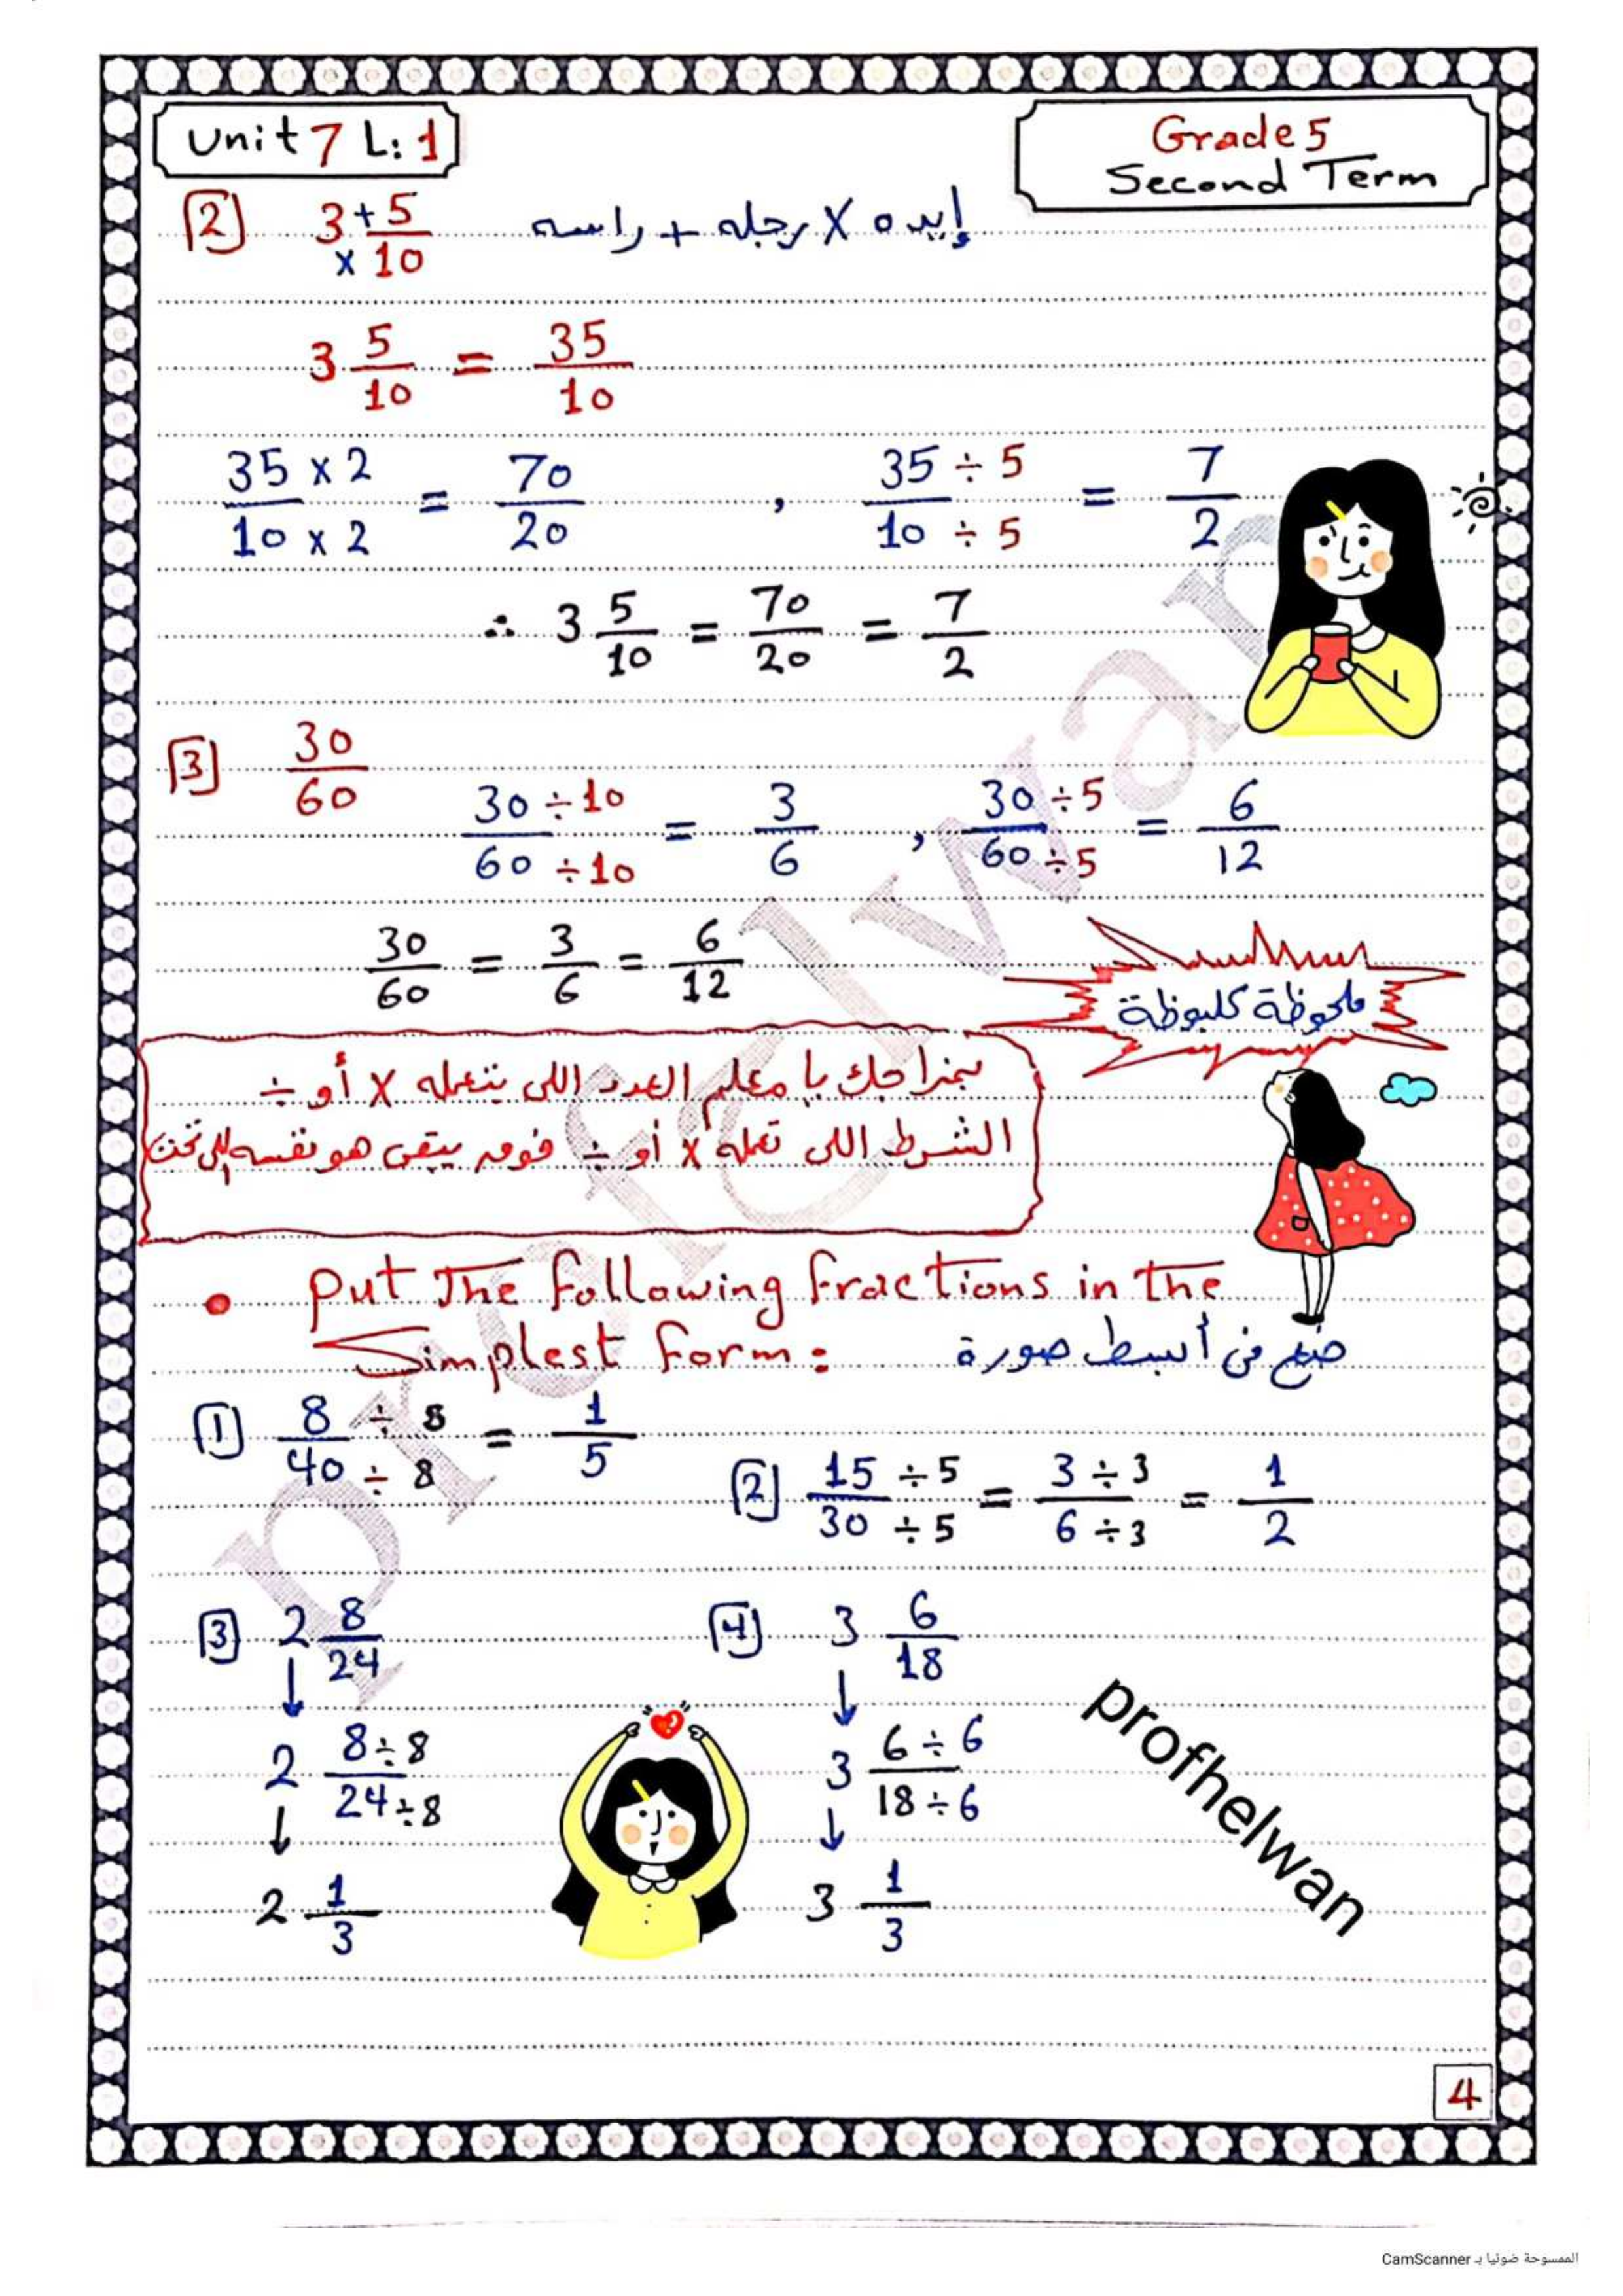 Unit 7 L: 1
Grade 5
Second Term
2 3 + 5/10 × 10 إيده × رجله + راسه
3 5/10 = 35/10
35 × 2 / 10 × 2 = 70/20 , 35 ÷ 5 / 10 ÷ 5 = 7/2
∴ 3 5/10 = 70/20 = 7/2
3 30/60
30 ÷ 10 / 60 ÷ 10 = 3/6 , 30 ÷ 5 / 60 ÷ 5 = 6/12
30/60 = 3/6 = 6/12
ملحوظة كلبوظة
بمزاجك يا معلم العدد اللى بتعمله × أو ÷
الشرط اللى تعمله × أو ÷ فوق يبقى هو نفسه اللى تحت
• Put The following fractions in the
Simplest form: ضع فى أبسط صورة
1 8 ÷ 8 / 40 ÷ 8 = 1/5
2 15 ÷ 5 / 30 ÷ 5 = 3 ÷ 3 / 6 ÷ 3 = 1/2
3 2 8/24
↓
2 8 ÷ 8 / 24 ÷ 8
↓
2 1/3
4 3 6/18
↓
3 6 ÷ 6 / 18 ÷ 6
↓
3 1/3
profhelwan
profelwan
4
الممسوحة ضوئيا بـ CamScanner